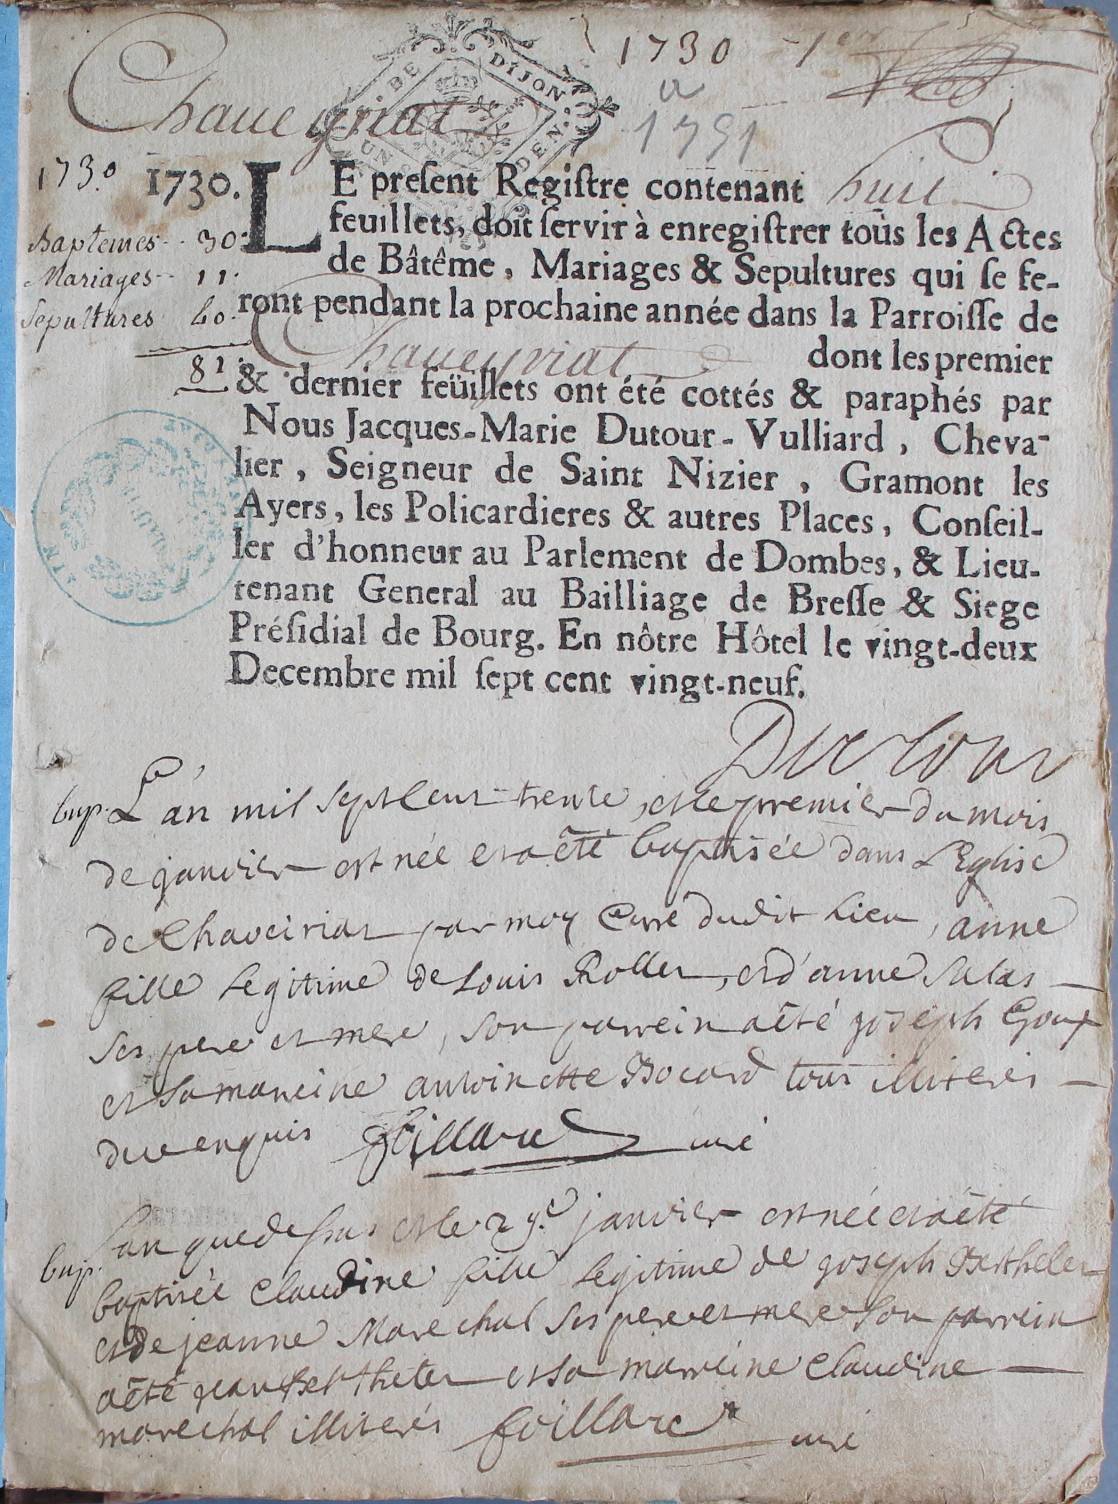 1730 - 1
a
1751
Chaveyriat
DE DIJON
UN DEN.
1730. 1730.
Baptemes - 30.
Mariages - 11.
Sepultures 40.
81
LE present Registre contenant huit
feuillets, doit servir à enregistrer tous les Actes
de Bâtême, Mariages & Sepultures qui se fe-
ront pendant la prochaine année dans la Parroisse de
Chaveyriat dont les premier
& dernier feüillets ont été cottés & paraphés par
Nous Jacques-Marie Dutour-Vulliard, Cheva-
lier, Seigneur de Saint Nizier, Gramont les
Ayers, les Policardieres & autres Places, Conseil-
ler d'honneur au Parlement de Dombes, & Lieu-
tenant General au Bailliage de Bresse & Siege
Présidial de Bourg. En nôtre Hôtel le vingt-deux
Decembre mil sept cent vingt-neuf.
Dutour
bap. L'an mil sept cent trente, et le premier du mois
de janvier est née et a êté baptisée dans L'Eglise
de Chaveiriat par moy Curé dudit lieu, anne
fille legitime de Louis Rollet, et d'anne Salas
ses pere et mere, son parrein a êté joseph Goux
et sa mareine antoinette Bocard tous illiterés
due enquis foillard curé
bap. L'an que dessus et le 29e janvier est née et a êté
baptisée Claudine fille legitime de joseph Berthelet
et de jeanne Marechal ses pere et mere son parrein
a êté jean Berthelet et sa marreine Claudine
marechal illiterés foillard curé